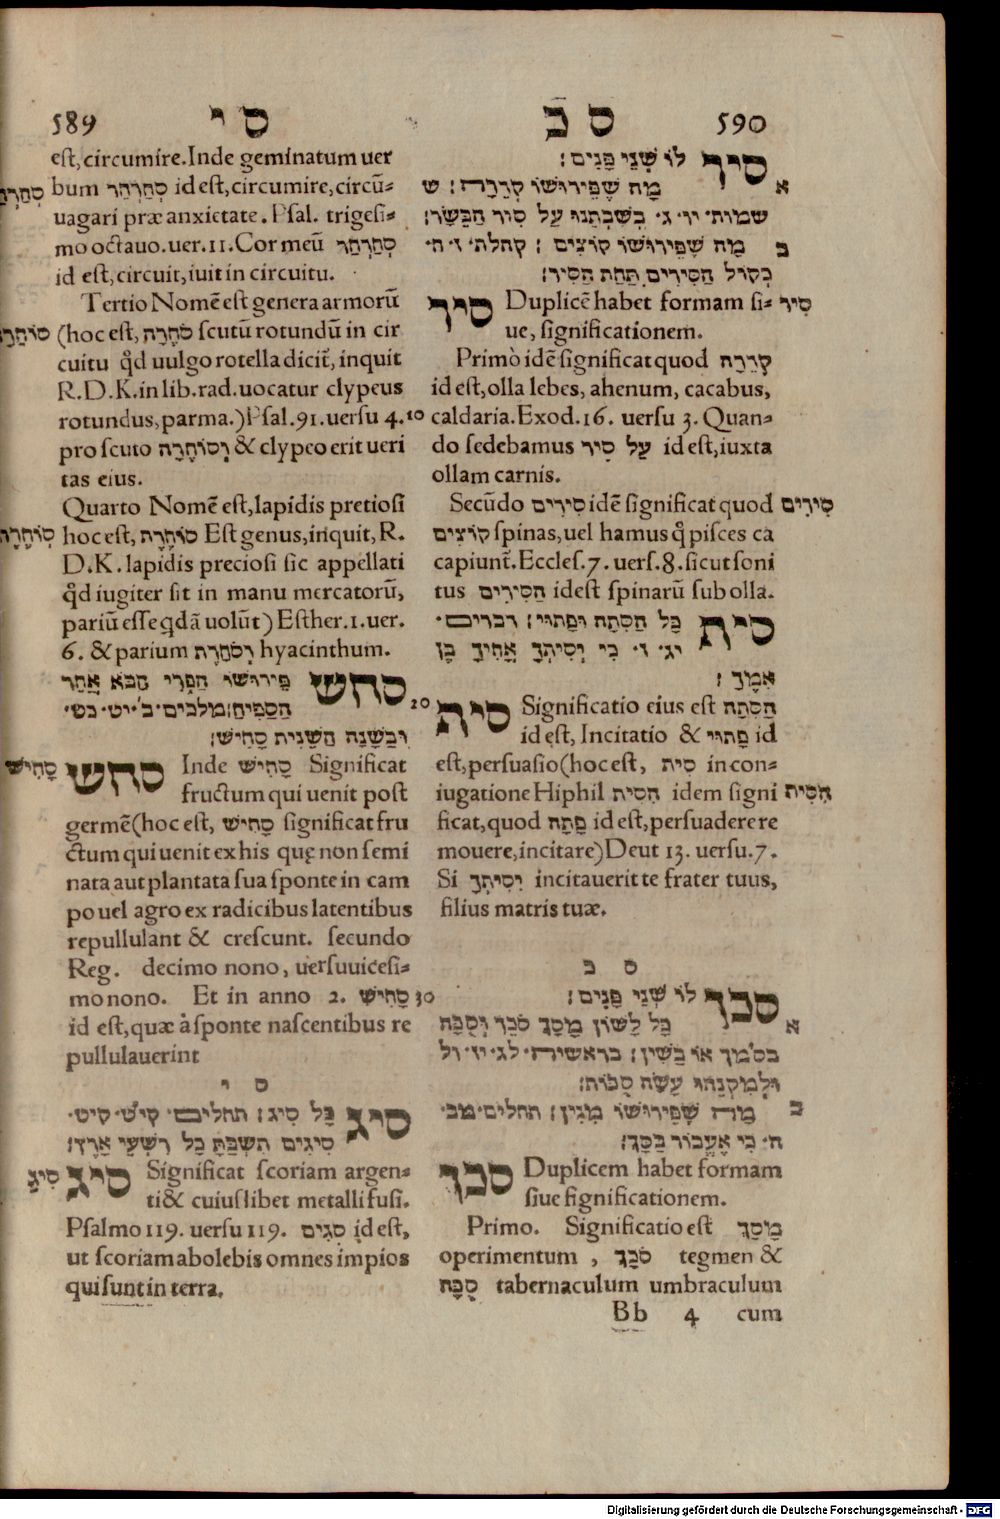 589 ס י
est, circumire. Inde geminatum uer
bum סְחַרְחַר id est, circumire, circū-
uagari præ anxietate. Psal. trigesi-
mo octauo. uer. 11. Cor meū סְחַרְחַר
id est, circuit, iuit in circuitu.
Tertio Nomē est genera armorū
(hoc est, סֹחֵרָה scutū rotundū in cir
cuitu qd̄ uulgo rotella dicit̄, inquit
R. D. K. in lib. rad. uocatur clypeus
rotundus, parma.) Psal. 91. uersu 4.
pro scuto וְסוֹחֵרָה & clypeo erit ueri
tas eius.
Quarto Nomē est, lapidis pretiosi
hoc est, סוֹחֶרֶת Est genus, inquit, R.
D. K. lapidis preciosi sic appellati
qd̄ iugiter sit in manu mercatorū,
pariū esse qdā uolūt) Esther. 1. uer.
6. & parium וְסֹחָרֶת hyacinthum.
סחש פירושו הפרי הבא אחר
הספיח׃ מלכים׳ ב׳ יט׳ כט׳
ובשנה השנית סחיש׃
סחש Inde סָחִישׁ Significat
fructum qui uenit post
germē (hoc est, סָחִישׁ significat fru
ctum qui uenit ex his quę non semi
nata aut plantata sua sponte in cam
po uel agro ex radicibus latentibus
repullulant & crescunt. secundo
Reg. decimo nono, uersu uicesi-
mo nono. Et in anno 2. סָחִישׁ
id est, quæ à sponte nascentibus re
pullulauerint
ס י
סיג כל סיג׃ תהלים׳ קי״ט׳ קיט׳
סיגים השבת כל רשעי ארץ׃
סיג Significat scoriam argen-
ti & cuiuslibet metalli fusi.
Psalmo 119. uersu 119. סִגִים id est,
ut scoriam abolebis omnes impios
qui sunt in terra.
סְחַרְחַר
סוֹחֵרָה
סוֹחֶרֶת
סָחִישׁ
סִיג
10
20
30
ס כ 590
סיר לו שני פנים׃
א מה שפירושו קדרה׃ ש
שמות׳ יו׳ ג׳ בשבתנו על סיר הבשר׃
ב מה שפירושו קוצים׃ קהלת׳ ז׳ ח׳
כקול הסירים תחת הסיר׃
סיר Duplicē habet formam si-
ue, significationem.
Primò idē significat quod קְדֵרָה
id est, olla lebes, ahenum, cacabus,
caldaria. Exod. 16. uersu 3. Quan-
do sedebamus עַל סִיר id est, iuxta
ollam carnis.
Secūdo סִירִים idē significat quod
קוֹצִים spinas, uel hamus q̄ pisces ca
capiunt̄. Eccles. 7. uers. 8. sicut soni
tus הַסִּירִים idest spinarū sub olla.
סית כל הסתה ופתוי׃ דברים׳
יג׳ ו׳ כי יסיתך אחיך בן
אמך׃
סית Significatio eius est הַסָתָה
id est, Incitatio & פִתּוּי id
est, persuasio (hoc est, סִית in con-
iugatione Hiphil הִסִּית idem signi
ficat, quod פִּתָה id est, persuadere re
mouere, incitare) Deut 13. uersu. 7.
Si יְסִיתְךָ incitauerit te frater tuus,
filius matris tuæ.
ס כ
סכך לו שני פנים׃
א כל לשון מסך סכך וסכה
בסמך או בשין׃ בראשית׳ לג׳ יז׳ ול
ולמקנהו עשה סכות׃
ב מה שפירושו מגין׃ תהלים׳ מב׳
ה׳ כי אעבור בסך׃
סכך Duplicem habet formam
siue significationem.
Primo. Significatio est מָסָךְ
operimentum, סֹכֵךְ tegmen &
סֻכָּה tabernaculum umbraculum
Bb 4 cum
סִיר
סִירִים
הִסִּית
Digitalisierung gefördert durch die Deutsche Forschungsgemeinschaft - DFG